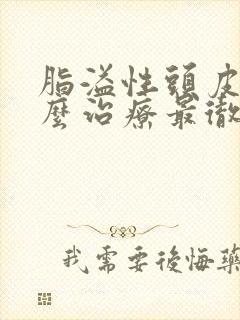 脂溢性頭皮
麼治療最徹
我需要後悔藥